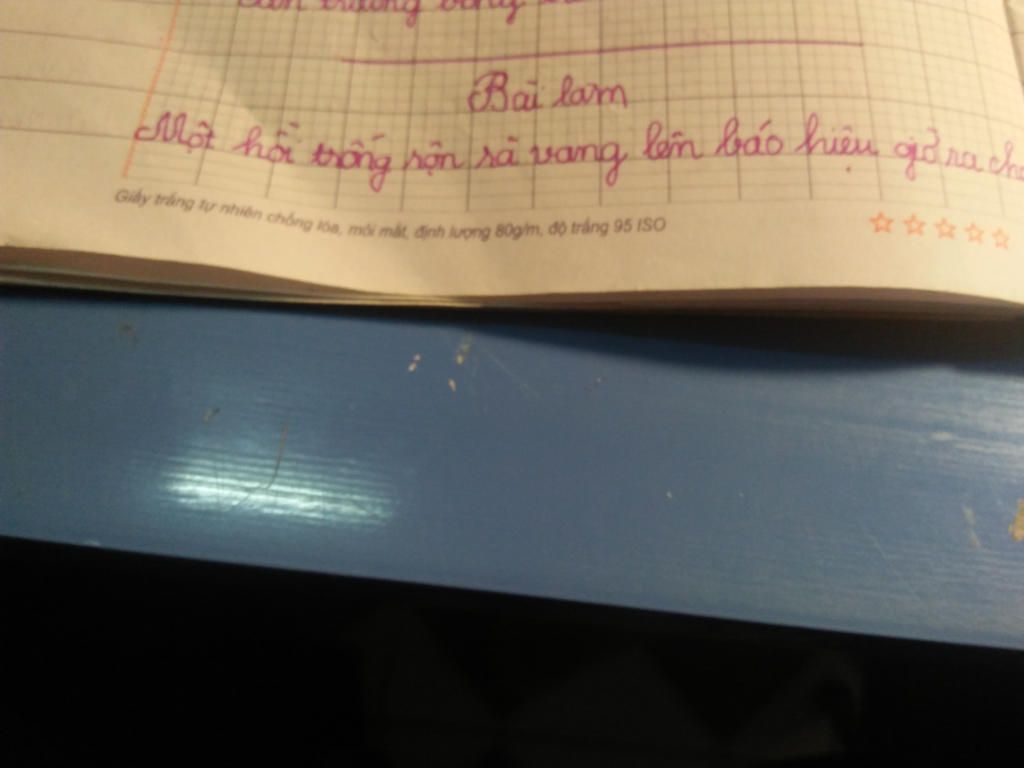 Bài làm
Một hồi trống rộn rã vang lên báo hiệu giờ ra
Giấy trắng tự nhiên chống lóa, mỏi mắt, định lượng 80g/m, độ trắng 95 ISO